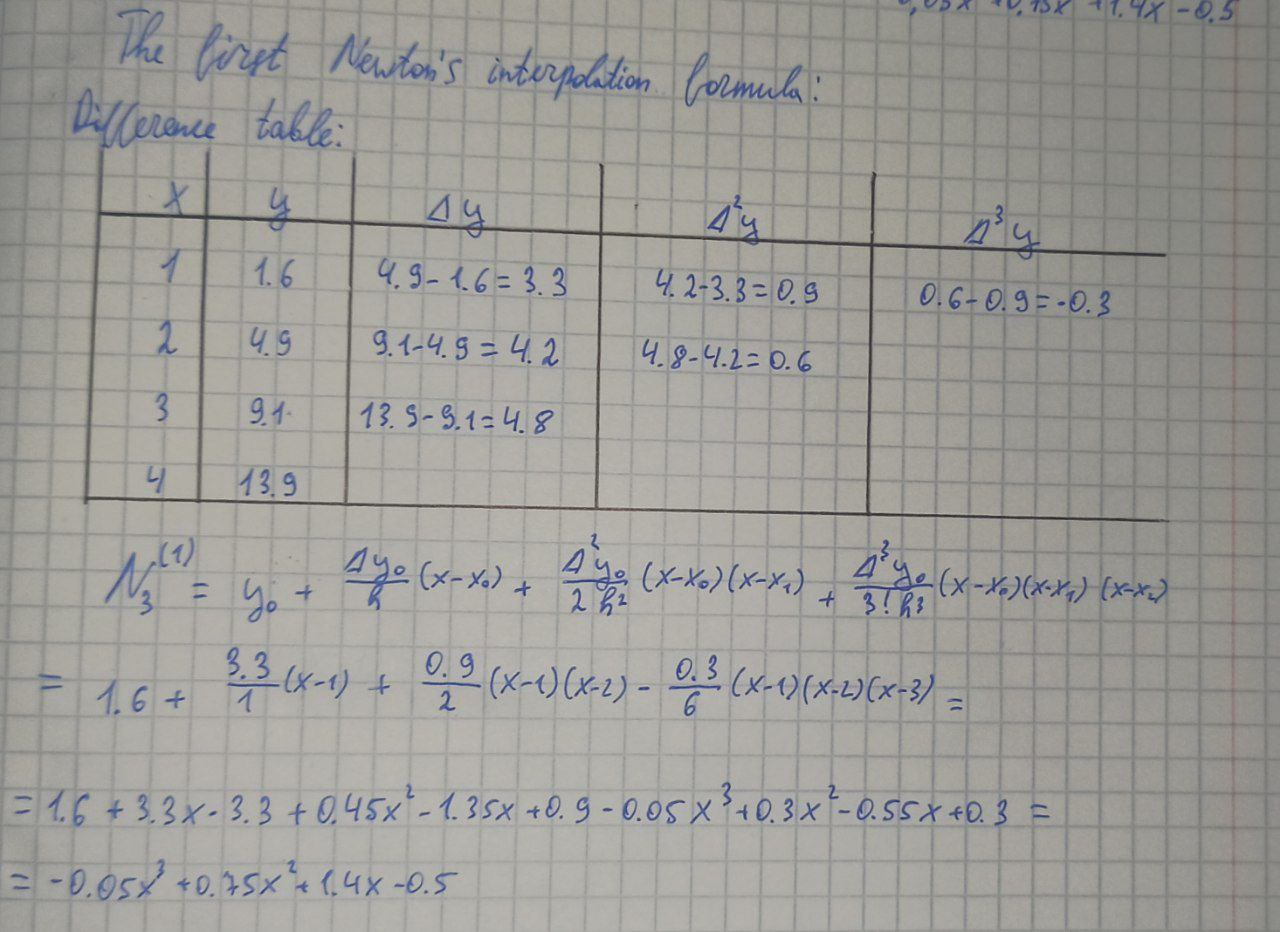 0,05x +0,75x +1.4x -0.5
The first Newton's interpolation formula:
Difference table:
x y Δy Δ²y Δ³y
1 1.6 4.9-1.6=3.3 4.2-3.3=0.9 0.6-0.9=-0.3
2 4.9 9.1-4.9=4.2 4.8-4.2=0.6
3 9.1 13.9-9.1=4.8
4 13.9
N₃⁽¹⁾ = y₀ + Δy₀/h (x-x₀) + Δ²y₀/2h² (x-x₀)(x-x₁) + Δ³y₀/3!h³ (x-x₀)(x-x₁)(x-x₂)
= 1.6 + 3.3/1 (x-1) + 0.9/2 (x-1)(x-2) - 0.3/6 (x-1)(x-2)(x-3) =
= 1.6 + 3.3x - 3.3 + 0.45x² - 1.35x + 0.9 - 0.05x³ + 0.3x² - 0.55x + 0.3 =
= -0.05x³ + 0.75x² + 1.4x - 0.5